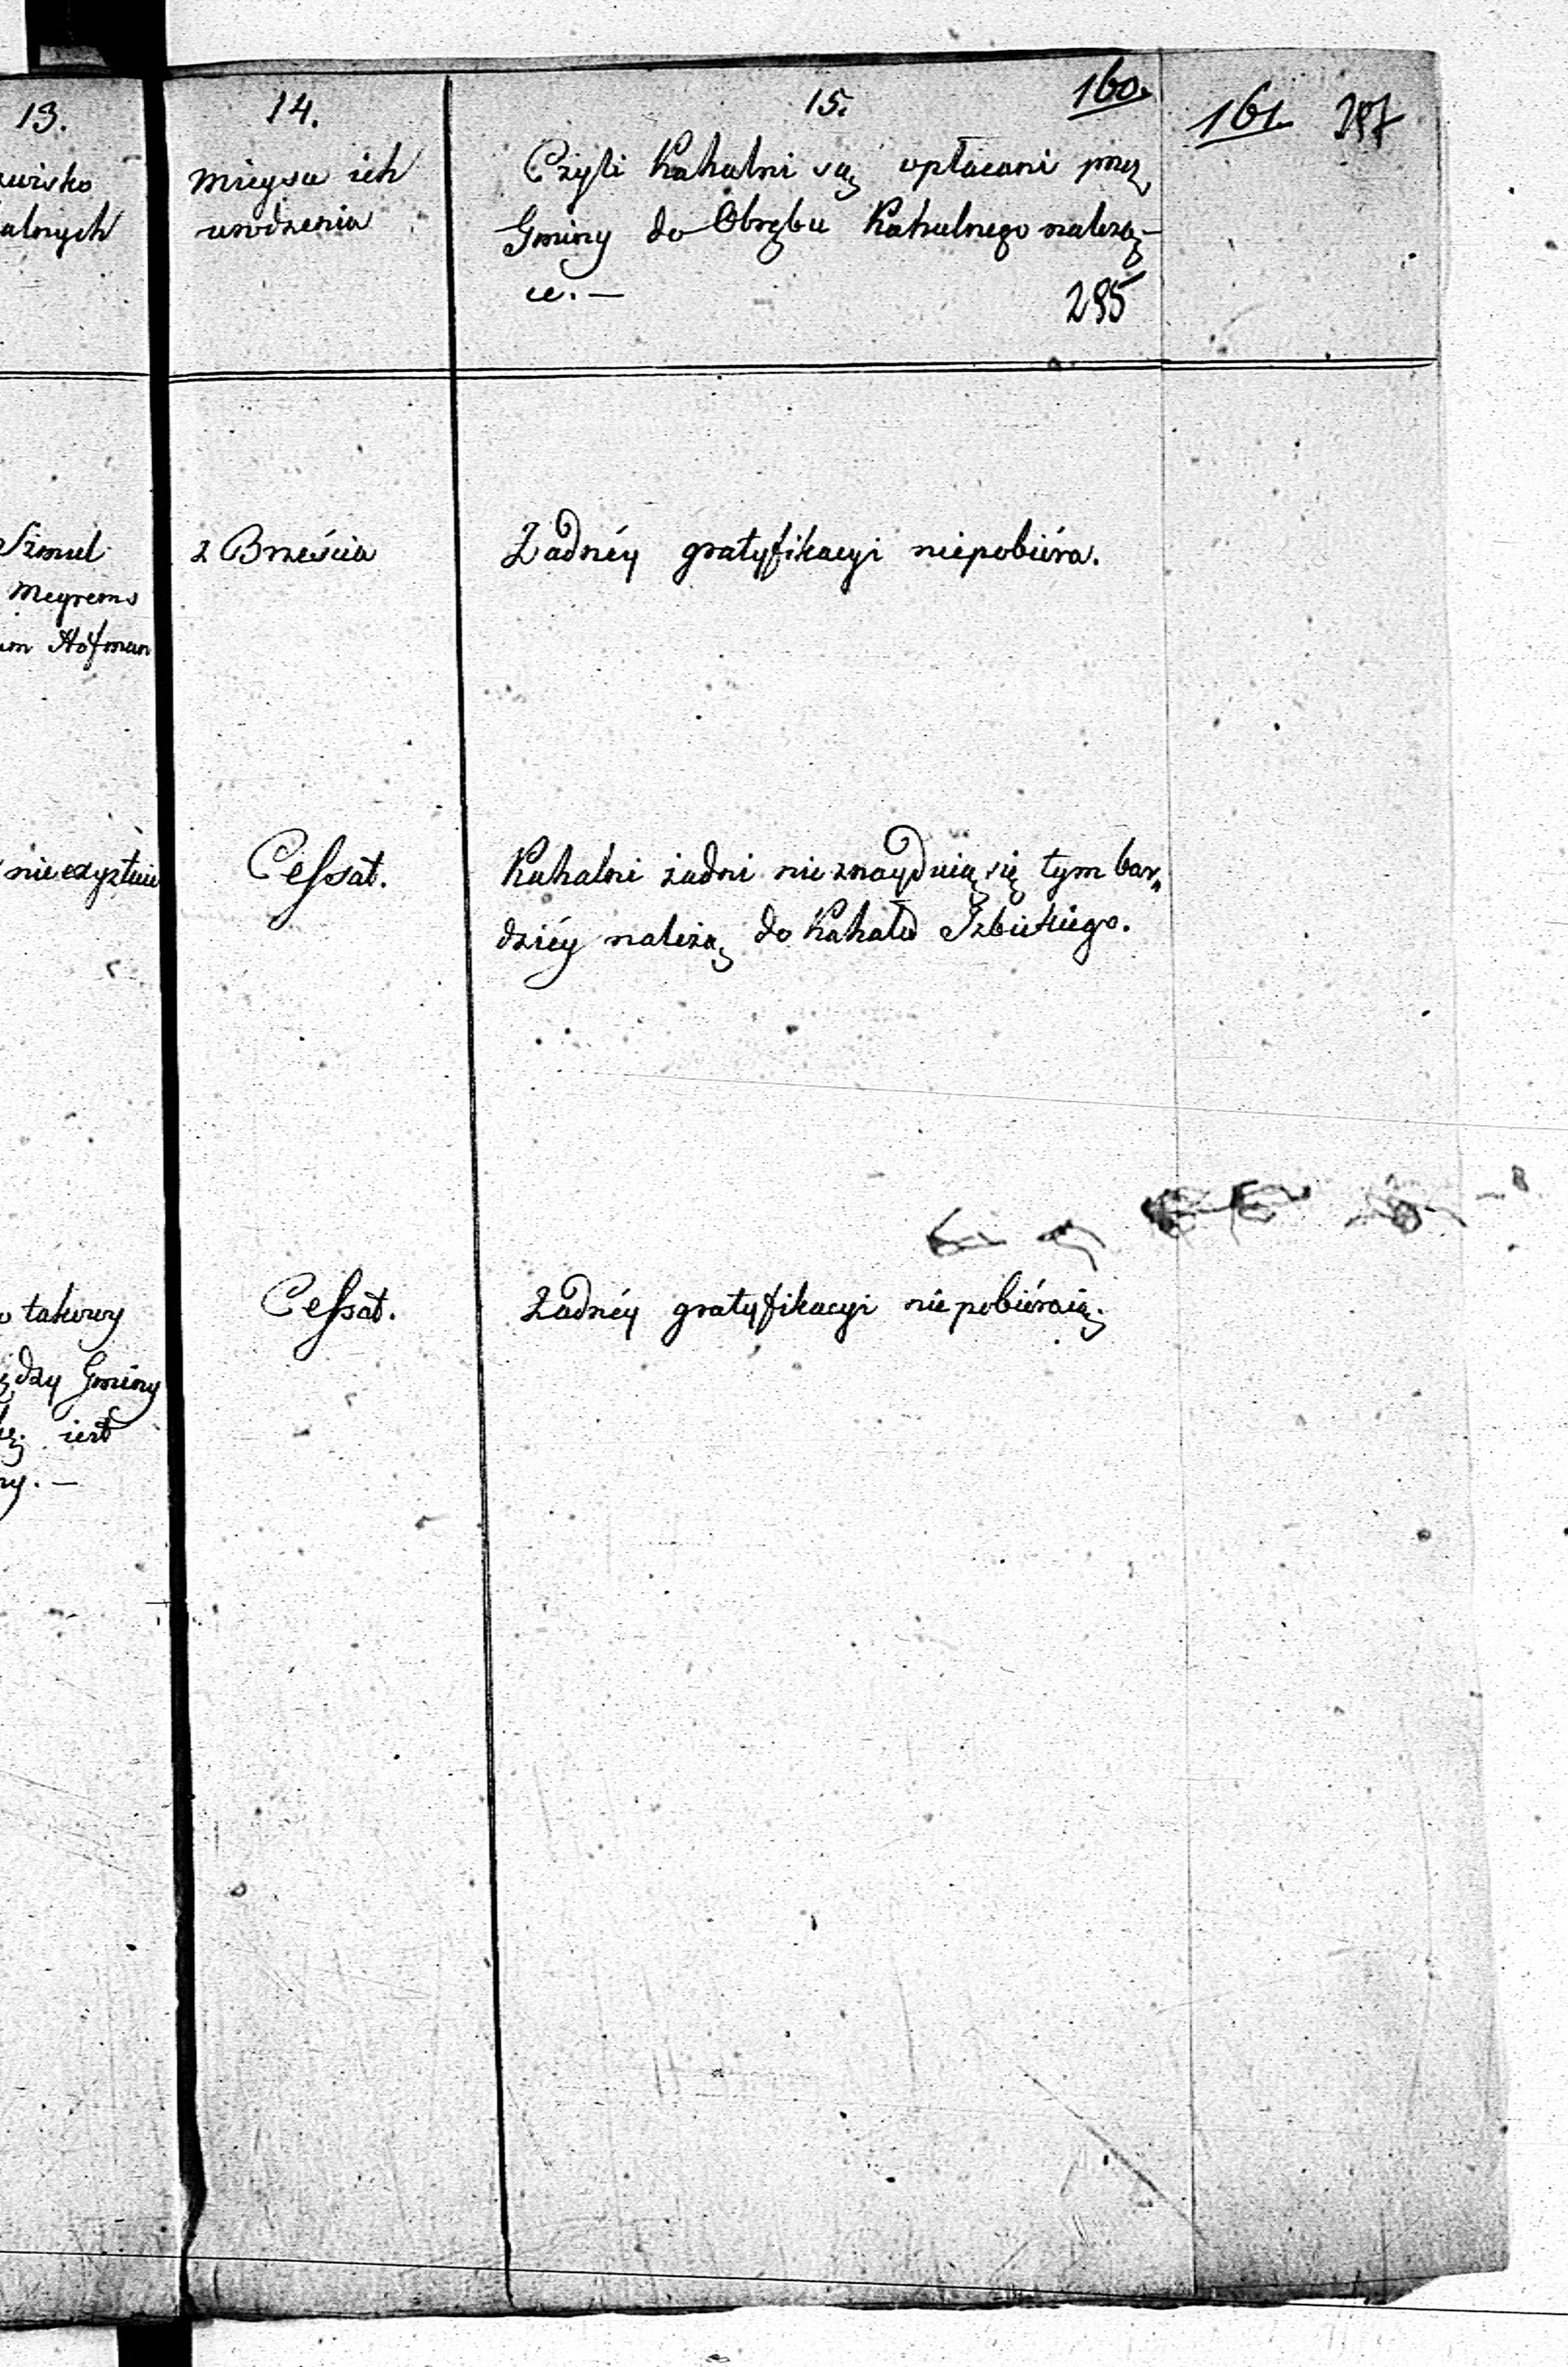 13. 14. 15. 160. 161. 287
wisko
alnych
mieysce ich
urodzenia
Czyli Kahalni są opłacani przez
Gminy do Obrębu Kahalnego należą-
ce. —
295
Szmul
Meyrem
Hofman
z Brześcia
Żadnéy gratyfikacyi niepobiéra.
nieexystuie
Cessat.
Kahalni żadni nieznayduią się tym bar„
dziéy należą do Kahału Izbickiego.
takowy
dzy Gminy
iest
ny. —
Cessat.
Żadnéy gratyfikacyi niepobiéraią.